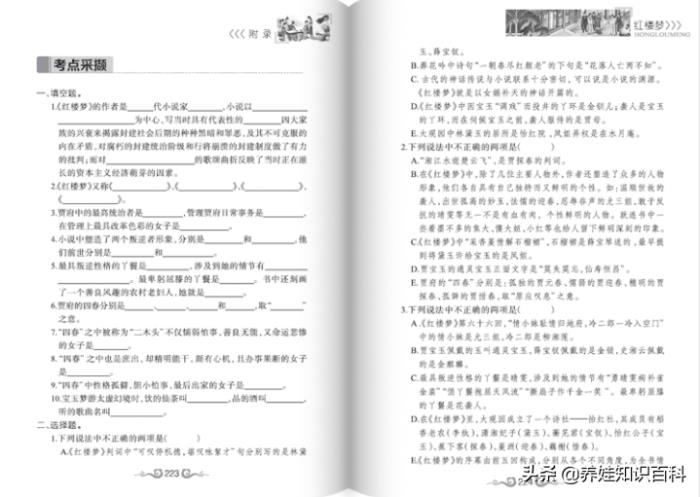 附 录
考点采撷
一、填空题。
1.《红楼梦》的作者是____代小说家____,小说以____
____为中心,写当时具有代表性的____四大家
族的兴衰来揭露封建社会后期的种种黑暗和罪恶,及其不可克服的
内在矛盾,对腐朽的封建统治阶级和行将崩溃的封建制度做了有力
的批判;而对____的歌颂曲折反映了当时正在滋
长的资本主义经济萌芽的因素。
2.《红楼梦》又称《____》、《____》、《____》、
《____》、《____》。
3.贾府中的最高统治者是____,管理贾府日常事务是____,
在管理上最具改革色彩的女子是____。
4.小说中塑造了两个叛逆者形象,分别是____和____,他
们前世分别是____和____。
5.最具叛逆性格的丫鬟是____,涉及到她的情节有____
____。最卑躬屈膝的丫鬟是____。书中还刻画
了一个善良风趣的农村老妇人,她就是____。
6.贾府的四春分别是____、____、____和____,取“____”
之意。
7.“四春”之中被称为“二木头”不仅懦弱怕事,善良无能,又命运悲惨
的女子是____。
8.“四春”之中也是庶出,却精明能干,颇有心机,且办事果断的女子
是____。
9.“四春”中性格孤僻,胆小怕事,最后出家的女子是____。
10.宝玉梦游太虚幻境时,饮的仙茶叫____,品的酒叫____,
听的歌曲名叫____。
二、选择题。
1.下列说法中不正确的两项是( )
A.《红楼梦》判词中“可叹停机德,堪叹咏絮才”句分别写的是林黛
223
红楼梦
HONGLOUMENG
玉、薛宝钗。
B.葬花吟中诗句“一朝春尽红颜老”的下句是“花落人亡两不知”。
C.古代的神话传说与小说联系十分密切,可以说是小说的渊源。
《红楼梦》就是以女娲补天的神话开篇的。
D.《红楼梦》中因宝玉“调戏”而投井的丫环是金钏儿;袭人是宝玉
的丫环,而在伺候宝玉之前,袭人服侍的是贾母。
E.大观园中林黛玉的居所是怡红院,凤姐弄权是在水月庵。
2.下列说法中不正确的两项是( )
A.“湘江水逝楚云飞”,是贾探春的判词。
B.在《红楼梦》中,除了几位主要人物外,作者还塑造了众多的人物
形象,他们各自具有自己独特而又鲜明的个性。如:温顺世故的
袭人,出世孤高的妙玉,法懦的迎春,忍辱吞声的尤三姐,敢于反
抗的晴雯等无一不是有血有肉,个性鲜明的人物。就连书中一
些着墨不多的焦大、傻大姐、小红等也给人留下鲜明深刻的印象。
C.《红楼梦》中“呆香菱情解石榴裙”,石榴裙是薛宝琴送的,最早提
到将黛玉许给宝玉的是凤姐。
D.贾宝玉的通灵宝玉正面文字是“莫失莫忘,仙寿恒昌”。
E.贾府的“四春”分别是:孤独的贾元春、懦弱的贾迎春、精明的贾
探春、孤僻的贾惜春,取“原应叹息”之意。
3.下列说法中不正确的两项是( )
A.《红楼梦》第六十六回,“情小妹耻情归地府,冷二郎一冷入空门”
中的情小妹是尤三姐,冷二郎是柳湘莲。
B.贾宝玉佩戴的玉叫通灵宝玉,薛宝钗佩戴的是金锁,史湘云佩戴
的是金麒麟。
C.最具叛逆性格的丫鬟是晴雯,涉及到她的情节有“勇晴雯病补雀
金裘”“俏丫鬟抱屈夭风流”“撕扇子作千金一笑”。最卑躬屈膝
的丫鬟是花袭人。
D.在《红楼梦》里,大观园成立了一个诗社——怡红社,其成员有稻
香老农(李纨)、潇湘妃子(黛玉)、蘅芜君(宝钗)、怡红公子(宝
玉)、蕉下客(探春)、菱洲(迎春)、藕榭(惜春)。
E.《红楼梦》的序幕由前五回构成,分别从各个不同角度,为全书情
头条 @养娃知识百科